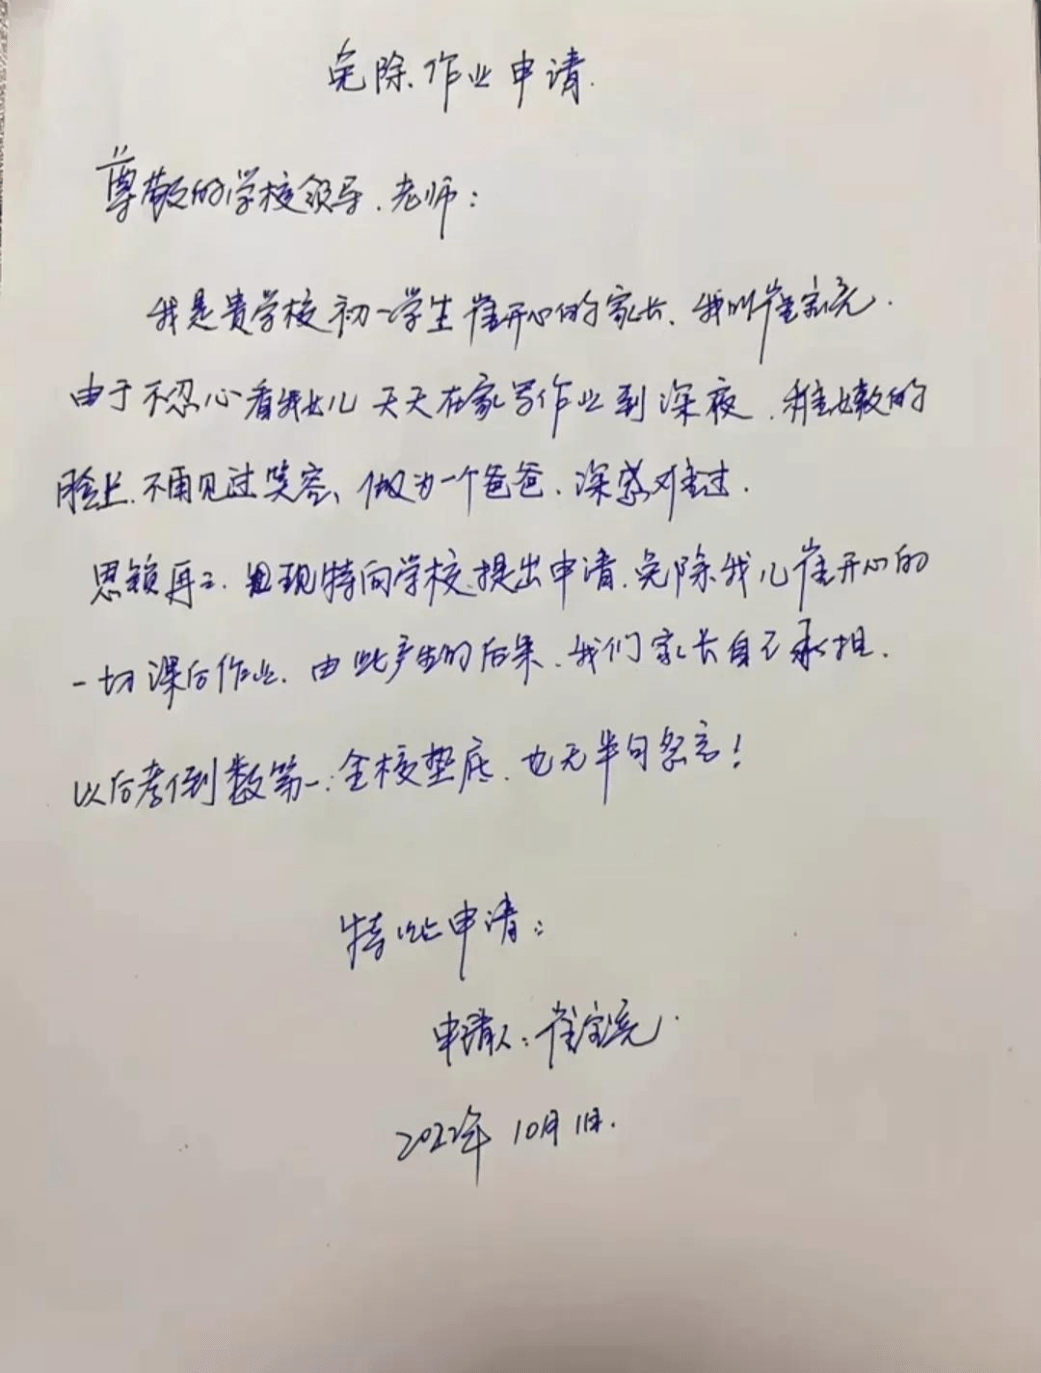 免除作业申请.
尊敬的学校领导.老师:
我是贵学校初一学生崔开心的家长、我叫崔宝亮.
由于不忍心看我女儿天天在家写作业到深夜.稚嫩的
脸上.不再见过笑容、做为一个爸爸、深感难过.
思锁再三.现特向学校提出申请.免除我儿崔开心的
一切课后作业.由此产生的后果、我们家长自己承担.
以后考倒数第一:全校垫底、也无半句怨言!
特此申请:
申请人:崔宝亮.
2022年10月1日.